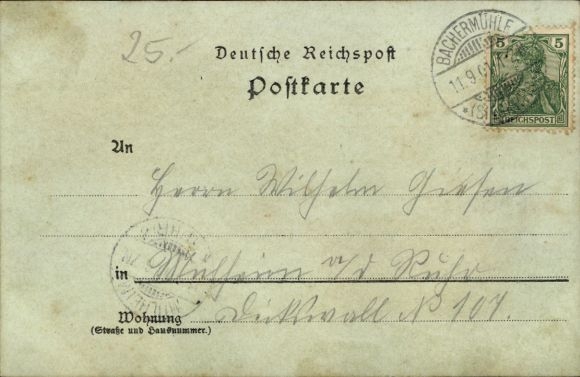 25.-
Deutsche Reichspost
Postkarte
BACHERMÜHLE
11.9.01
5 5
REICHSPOST
An
Herrn Wilhelm Giesen
in Mülheim a/d Ruhr
Dickswall No 107.
Wohnung
(Straße und Hausnummer.)